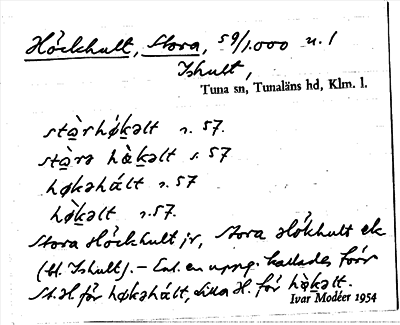 Höckhult, Stora, 59/1.000 n. 1
Ishult,
Tuna sn, Tunaläns hd, Klm. l.
stàrhø̀kəlt s. 57.
stàra hàkəlt s. 57
høkəhált s. 57
hø̀kəlt s. 57.
Stora Höckhult jr, Stora Hökhult ek
(bl. Ishult). – Enl. en uppg. kallades förr
St. H. för høkəhált, Lilla H. för hø̀kəlt.
Ivar Modéer 1954